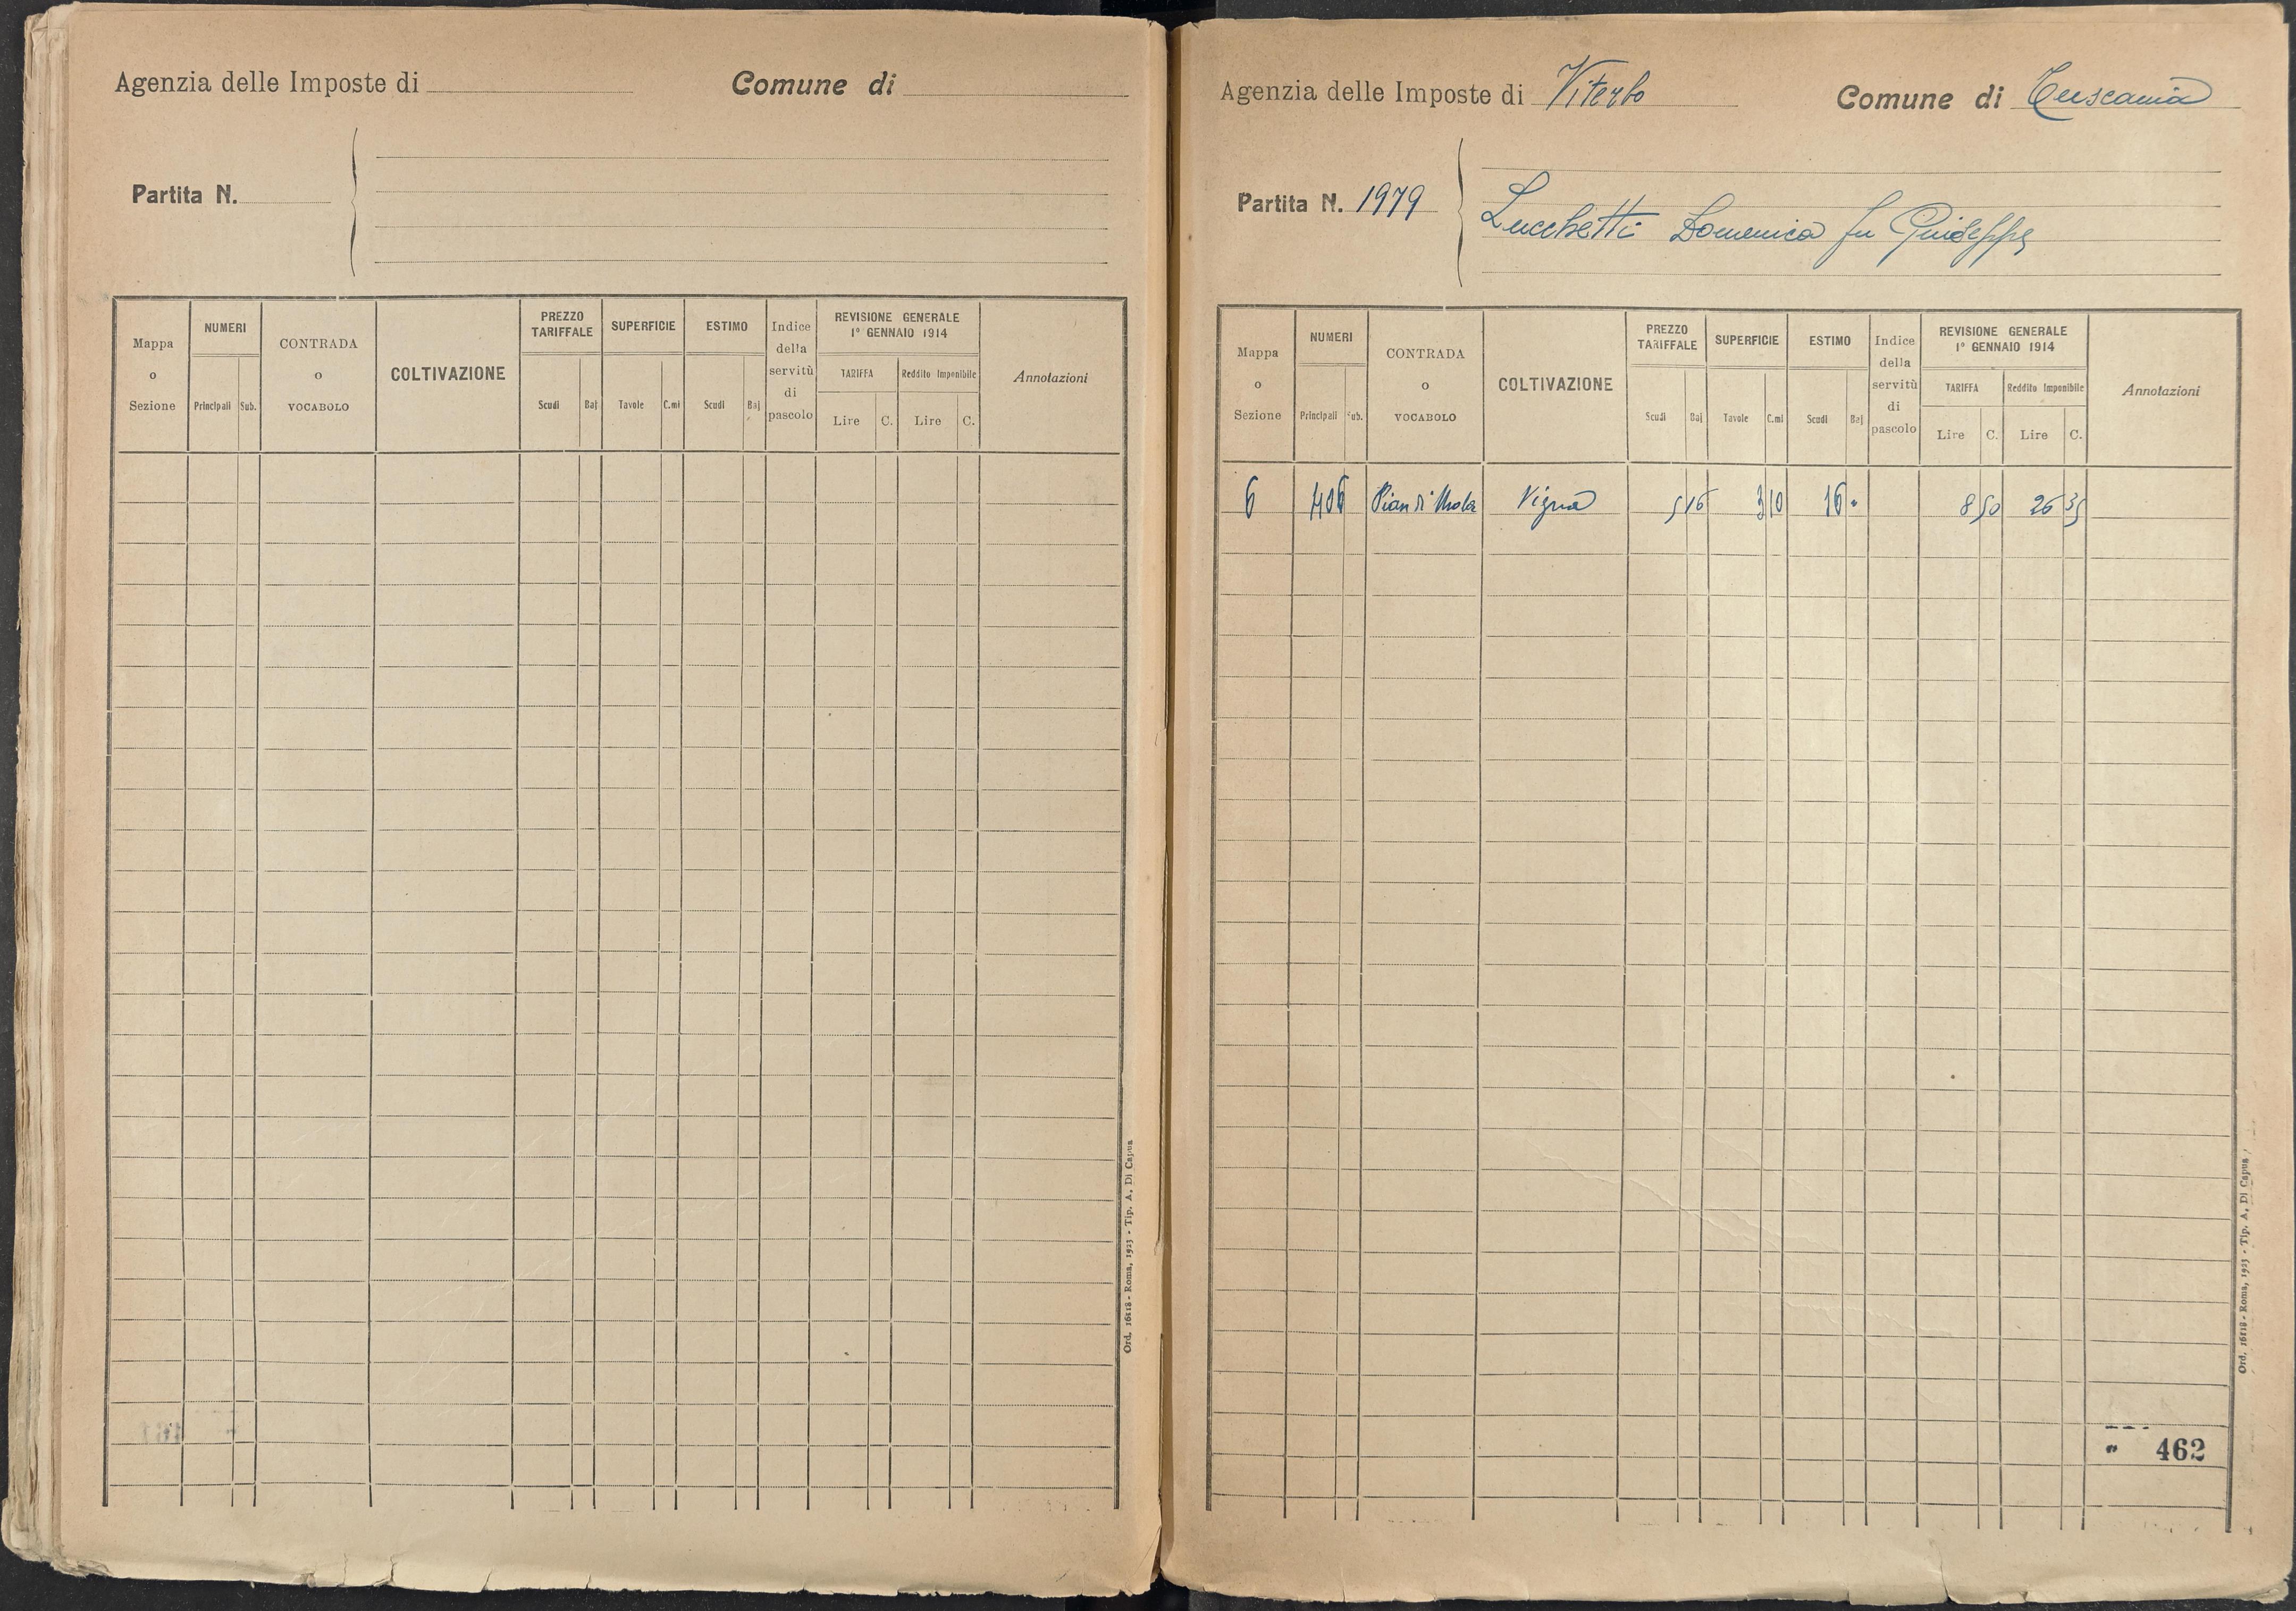 Agenzia delle Imposte di Comune di
Partita N.
Mappa o Sezione NUMERI Principali Sub. CONTRADA o VOCABOLO COLTIVAZIONE PREZZO TARIFFALE Scudi Baj SUPERFICIE Tavole C.mi ESTIMO Scudi Baj Indice della servitù di pascolo REVISIONE GENERALE 1° GENNAIO 1914 TARIFFA Lire C. Reddito Imponibile Lire C. Annotazioni
Ord. 16118 - Roma, 1923 - Tip. A. Di Capua
Agenzia delle Imposte di Viterbo Comune di Tuscania
Partita N. 1979
Lucchetti Domenica fu Giuseppe
Mappa o Sezione NUMERI Principali Sub. CONTRADA o VOCABOLO COLTIVAZIONE PREZZO TARIFFALE Scudi Baj SUPERFICIE Tavole C.mi ESTIMO Scudi Baj Indice della servitù di pascolo REVISIONE GENERALE 1° GENNAIO 1914 TARIFFA Lire C. Reddito Imponibile Lire C. Annotazioni
6 406 Pian di Mola Vigna 5 16 3 10 16 " 8 50 26 35
" 462
Ord. 16118 - Roma, 1923 - Tip. A. Di Capua